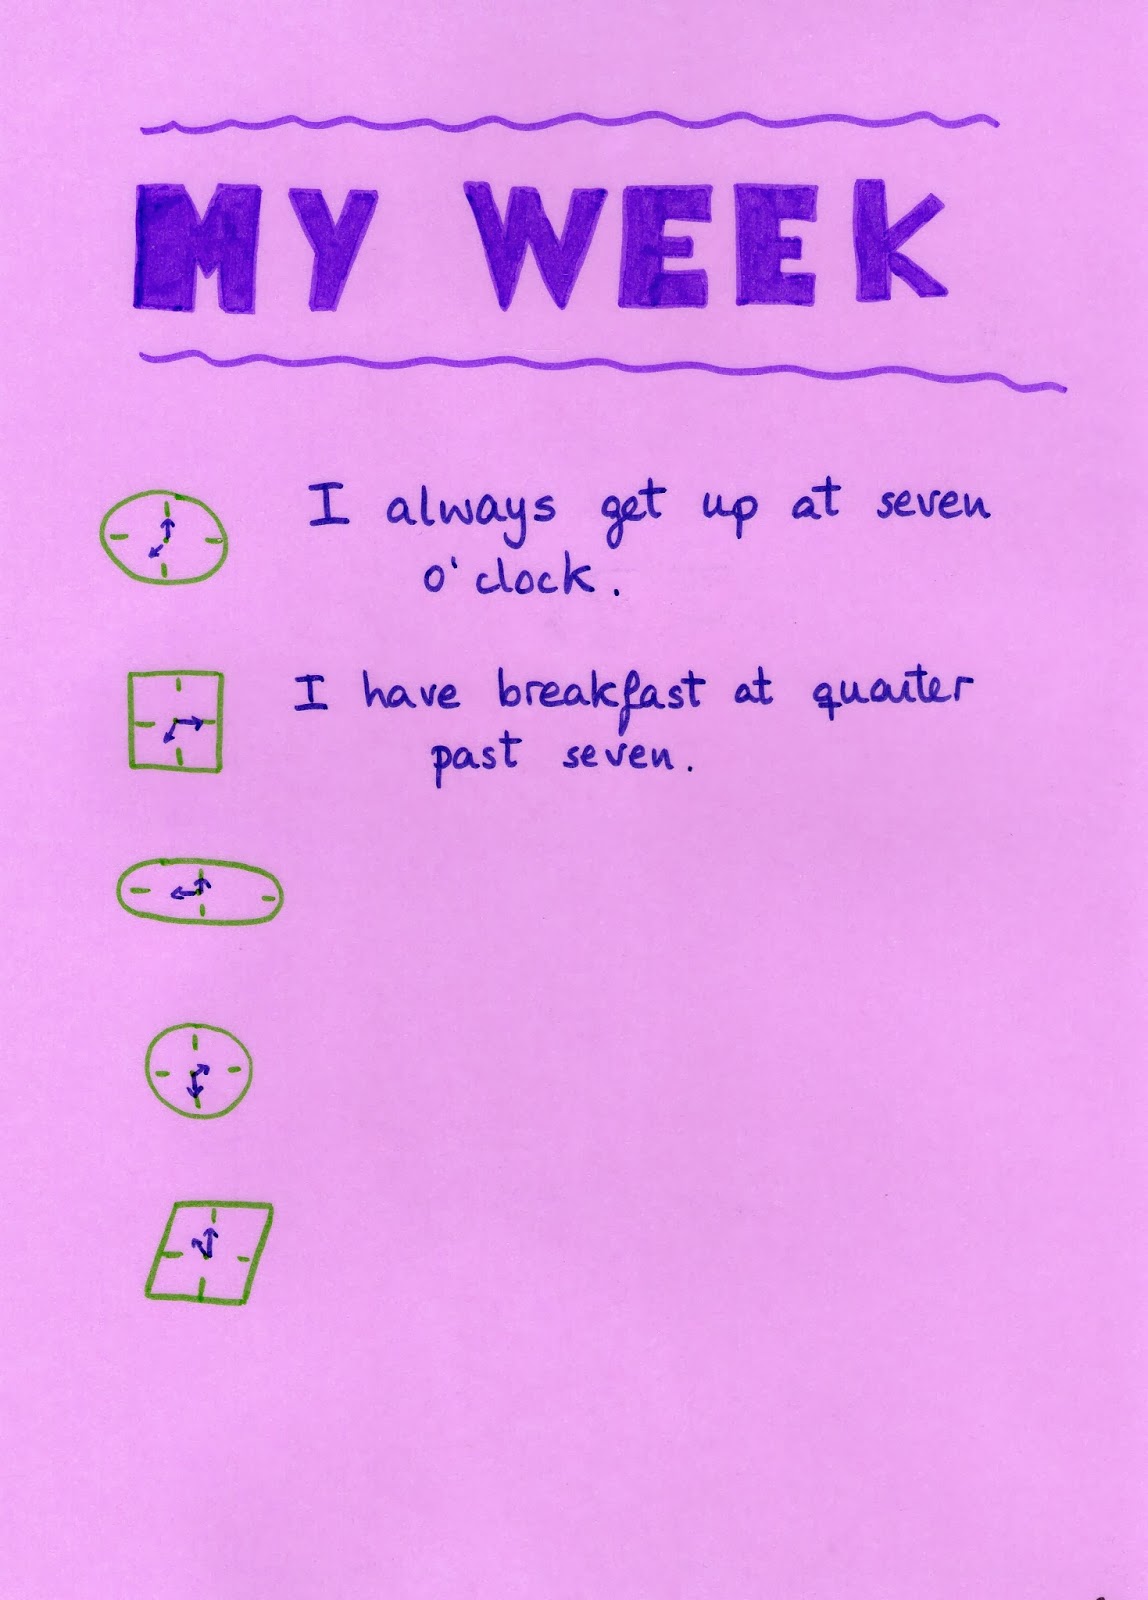 MY WEEK
I always get up at seven
o'clock.
I have breakfast at quarter
past seven.